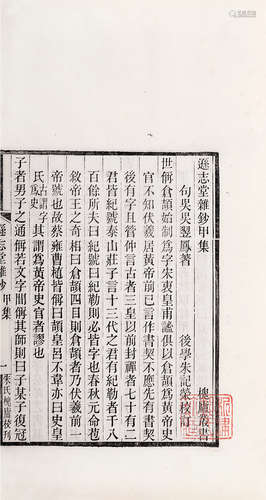 遜志堂雜鈔甲集
槐廬叢書
句吳吳翌鳳著
後學朱記榮校訂
世偁倉頡始制爲字朱衷皇甫謐俱以倉頡爲黃帝史
官不知伏羲居黃帝前已言作書契不應先有書契
後有字且管仲言古者三皇以前封禪者七十有二
君皆有紀號泰山莊子言十三代之君有紀勒者千八
百餘所夫曰紀號曰紀勒則必皆字也春秋元命苞
敘帝王之奇相曰倉頡四目則倉頡者乃伏羲前一
帝號也故蔡邕曹植皆偁曰頡皇呂不韋亦曰史皇
氏古謂字爲史其謂爲黃帝史官者謬也
子者男子之通偁若文字閒偁其師則曰子某子復冠
遜志堂雜鈔 甲集
一
朱氏槐廬校刋